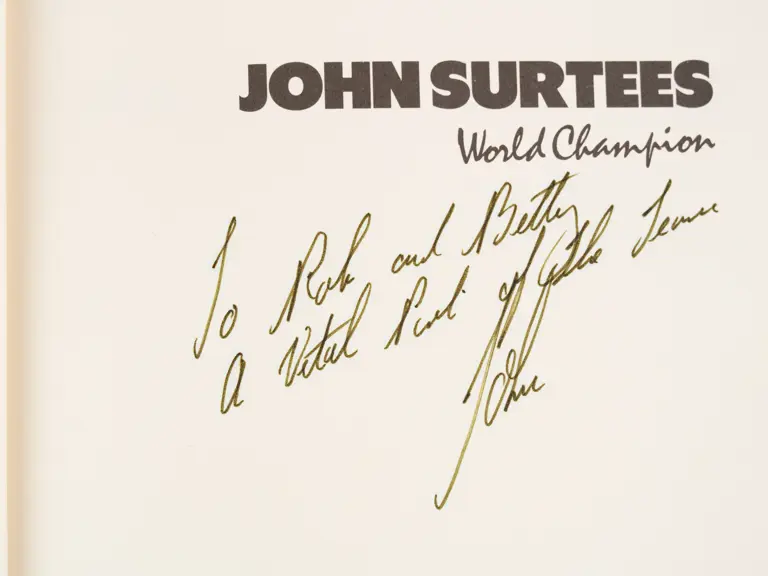 JOHN SURTEES
World Champion
To Rob and Betty
A Vital Part of the Team
John